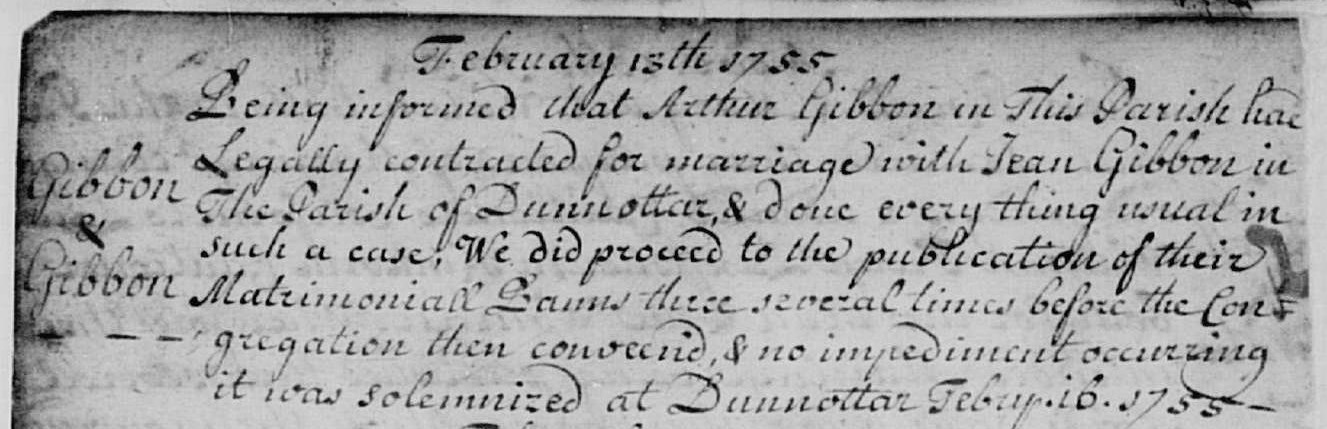 February 13th 1755
Being informed that Arthur Gibbon in This Parish had
Legally contracted for marriage with Jean Gibbon in
The Parish of Dunnottar, & done every thing usual in
such a case, We did proceed to the publication of their
Matrimoniall Banns three several times before the Con=
gregation then conveend, & no impediment occurring
it was solemnized at Dunnottar Febry. 16. 1755 —
Gibbon
&
Gibbon